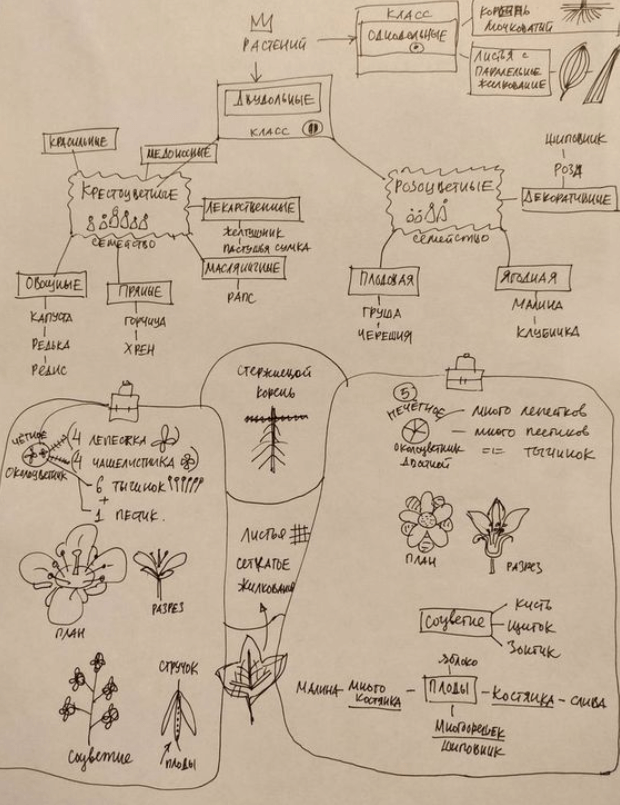 РАСТЕНИЙ
КЛАСС
ОДНОДОЛЬНЫЕ
КОРЕНЬ
МОЧКОВАТИЙ
ЛИСТЬЯ С
ПАРАЛЕЛЬНЫЕ
ЖИЛКОВАНИЕ
ДВУДОЛЬНЫЕ
КЛАСС
КРАСИЛЬНЫЕ
МЕДОНОСНЫЕ
КРЕСТОЦВЕТНЫЕ
СЕМЕЙСТВО
ЛЕКАРСТВЕННЫЕ
ЖЕЛТУШНИК
ПАСТУШЬЯ СУМКА
МАСЛЯНИЧНЫЕ
РАПС
ОВОЩНЫЕ
КАПУСТА
РЕДЬКА
РЕДИС
ПРЯНЫЕ
ГОРЧИЦА
ХРЕН
РОЗОЦВЕТНЫЕ
СЕМЕЙСТВО
ШИПОВНИК
РОЗА
ДЕКОРАТИВНЫЕ
ПЛОДОВАЯ
ГРУША
ЧЕРЕШНЯ
ЯГОДНАЯ
МАЛИНА
КЛУБНИКА
СТЕРЖНЕВОЙ
КОРЕНЬ
ЛИСТЬЯ
СЕТЧАТОЕ
ЖИЛКОВАНИЕ
ЧЁТНОЕ
ОКОЛОЦВЕТНИК
4 ЛЕПЕСТКА
4 ЧАШЕЛИСТНИКА
6 ТЫЧИНОК
+
1 ПЕСТИК.
ПЛАН
РАЗРЕЗ
СОЦВЕТИЕ
СТРУЧОК
ПЛОДЫ
5
НЕЧЁТНОЕ
ОКОЛОЦВЕТНИК
ДВОЙНОЙ
МНОГО ЛЕПЕСТКОВ
— МНОГО ПЕСТИКОВ
— =||= ТЫЧИНОК
ПЛАН
РАЗРЕЗ
СОЦВЕТИЕ
КИСТЬ
ЩИТОК
ЗОНТИК
ЯБЛОКО
МАЛИНА — МНОГО
КОСТЯНКА
— ПЛОДЫ — КОСТЯНКА — СЛИВА
МНОГООРЕШЕК
ШИПОВНИК